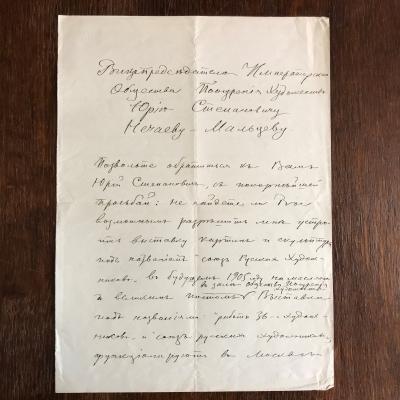 Вицепредседателю Императорск
Общества Поощренія Художествъ
Юрію Степановичу
Нечаеву-Мальцеву
Позвольте обратиться къ Вамъ
Юрій Степановичъ, съ покорнѣйшей
просьбой: не найдете ли Вы
возможнымъ разрѣшить мнѣ устро-
ить выставку картинъ и скульптуры
подъ названіемъ "союзъ Русскихъ Худож-
никовъ", въ будущемъ 1905 году на масляной
въ залахъ общества поощренія
художествъ
и великимъ постомъ? Выставки
подъ названіемъ "работъ 36-и худож-
никовъ" и "союзъ русскихъ художниковъ"
функціонируютъ въ Москвѣ